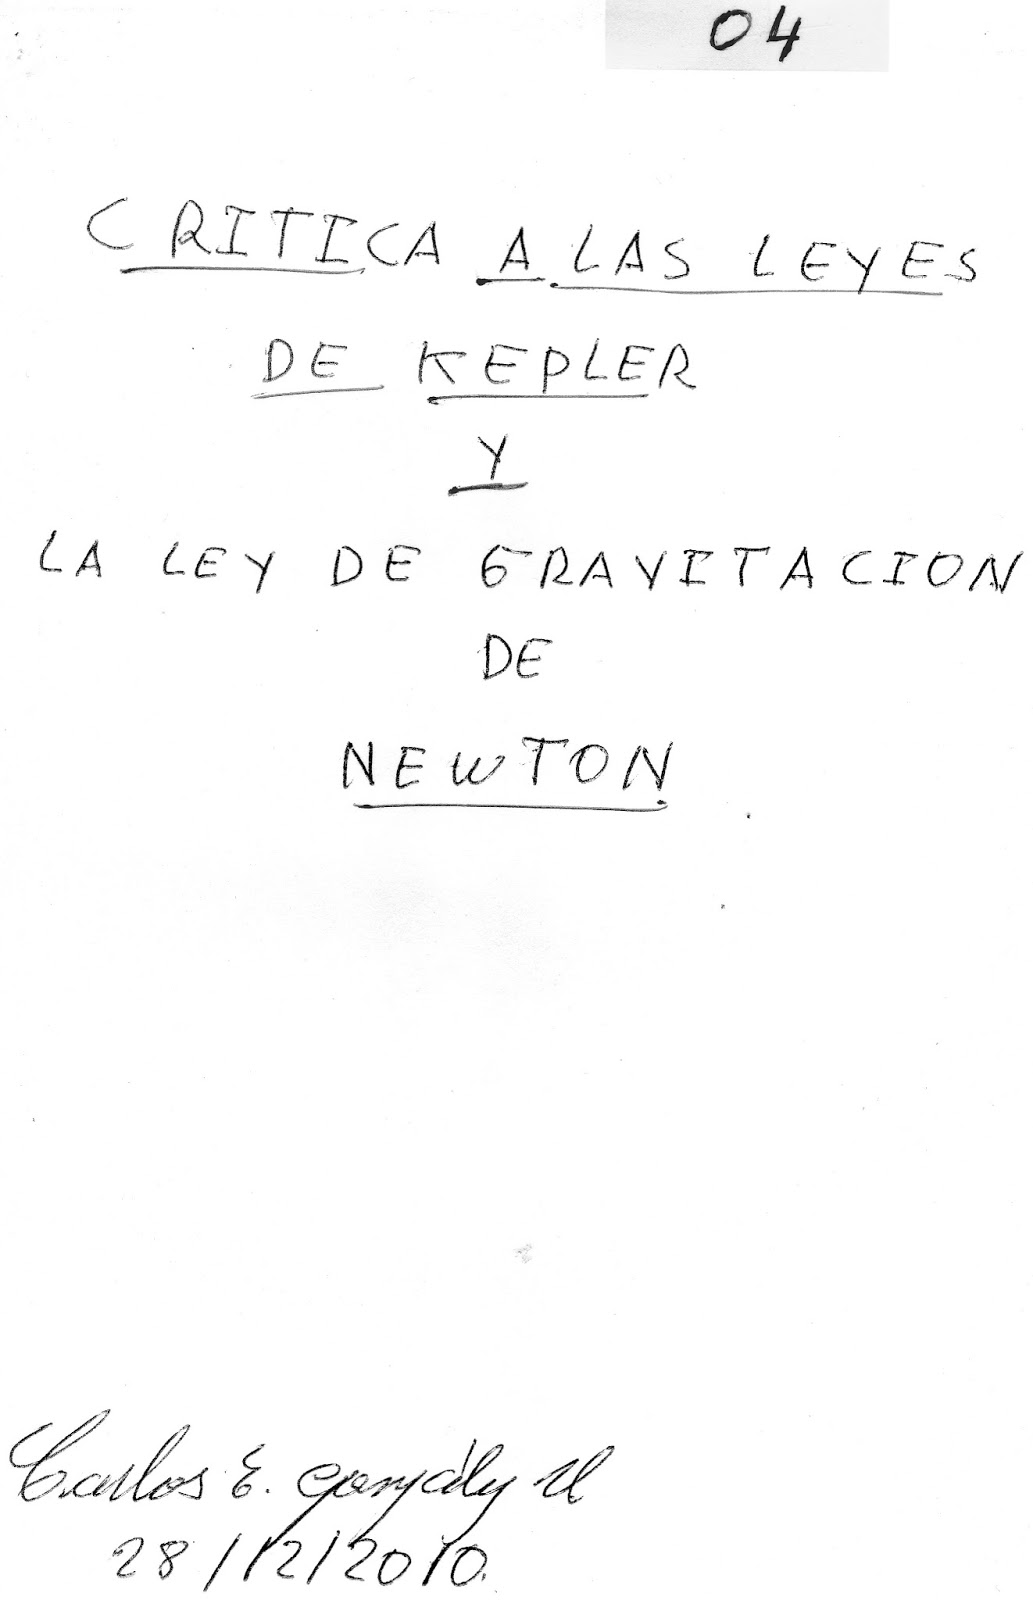 04
CRITICA A LAS LEYES
DE KEPLER
Y
LA LEY DE GRAVITACION
DE
NEWTON
Carlos E. González U
28/12/2010.